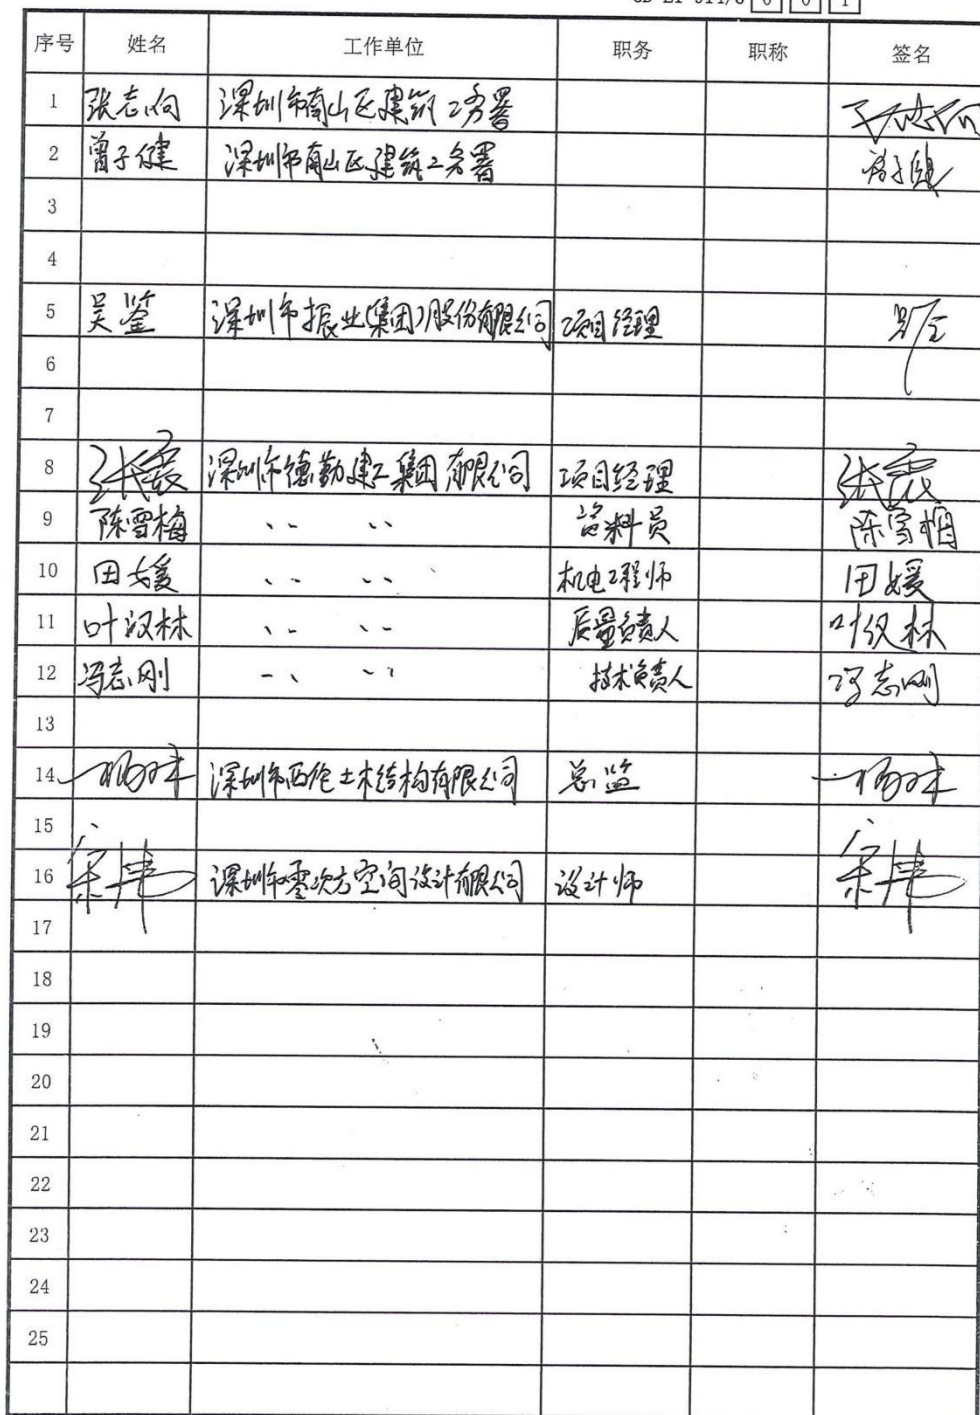 序号 姓名 工作单位 职务 职称 签名
1 张志向 深圳市南山区建筑工务署
2 曾子健 深圳市南山区建筑工务署 曾子健
3
4
5 吴鉴 深圳市振业(集团)股份有限公司 项目经理
6
7
8 深圳市德勤建工集团有限公司 项目经理
9 陈雪梅 、、 、、 资料员 陈雪梅
10 田媛 、、 、、 机电工程师 田媛
11 叶汉林 、、 、、 质量负责人 叶汉林
12 冯志刚 、、 、、 技术负责人 冯志刚
13
14 深圳市西伦土木结构有限公司 总监
15
16 深圳市零次方空间设计有限公司 设计师
17
18
19
20
21
22
23
24
25